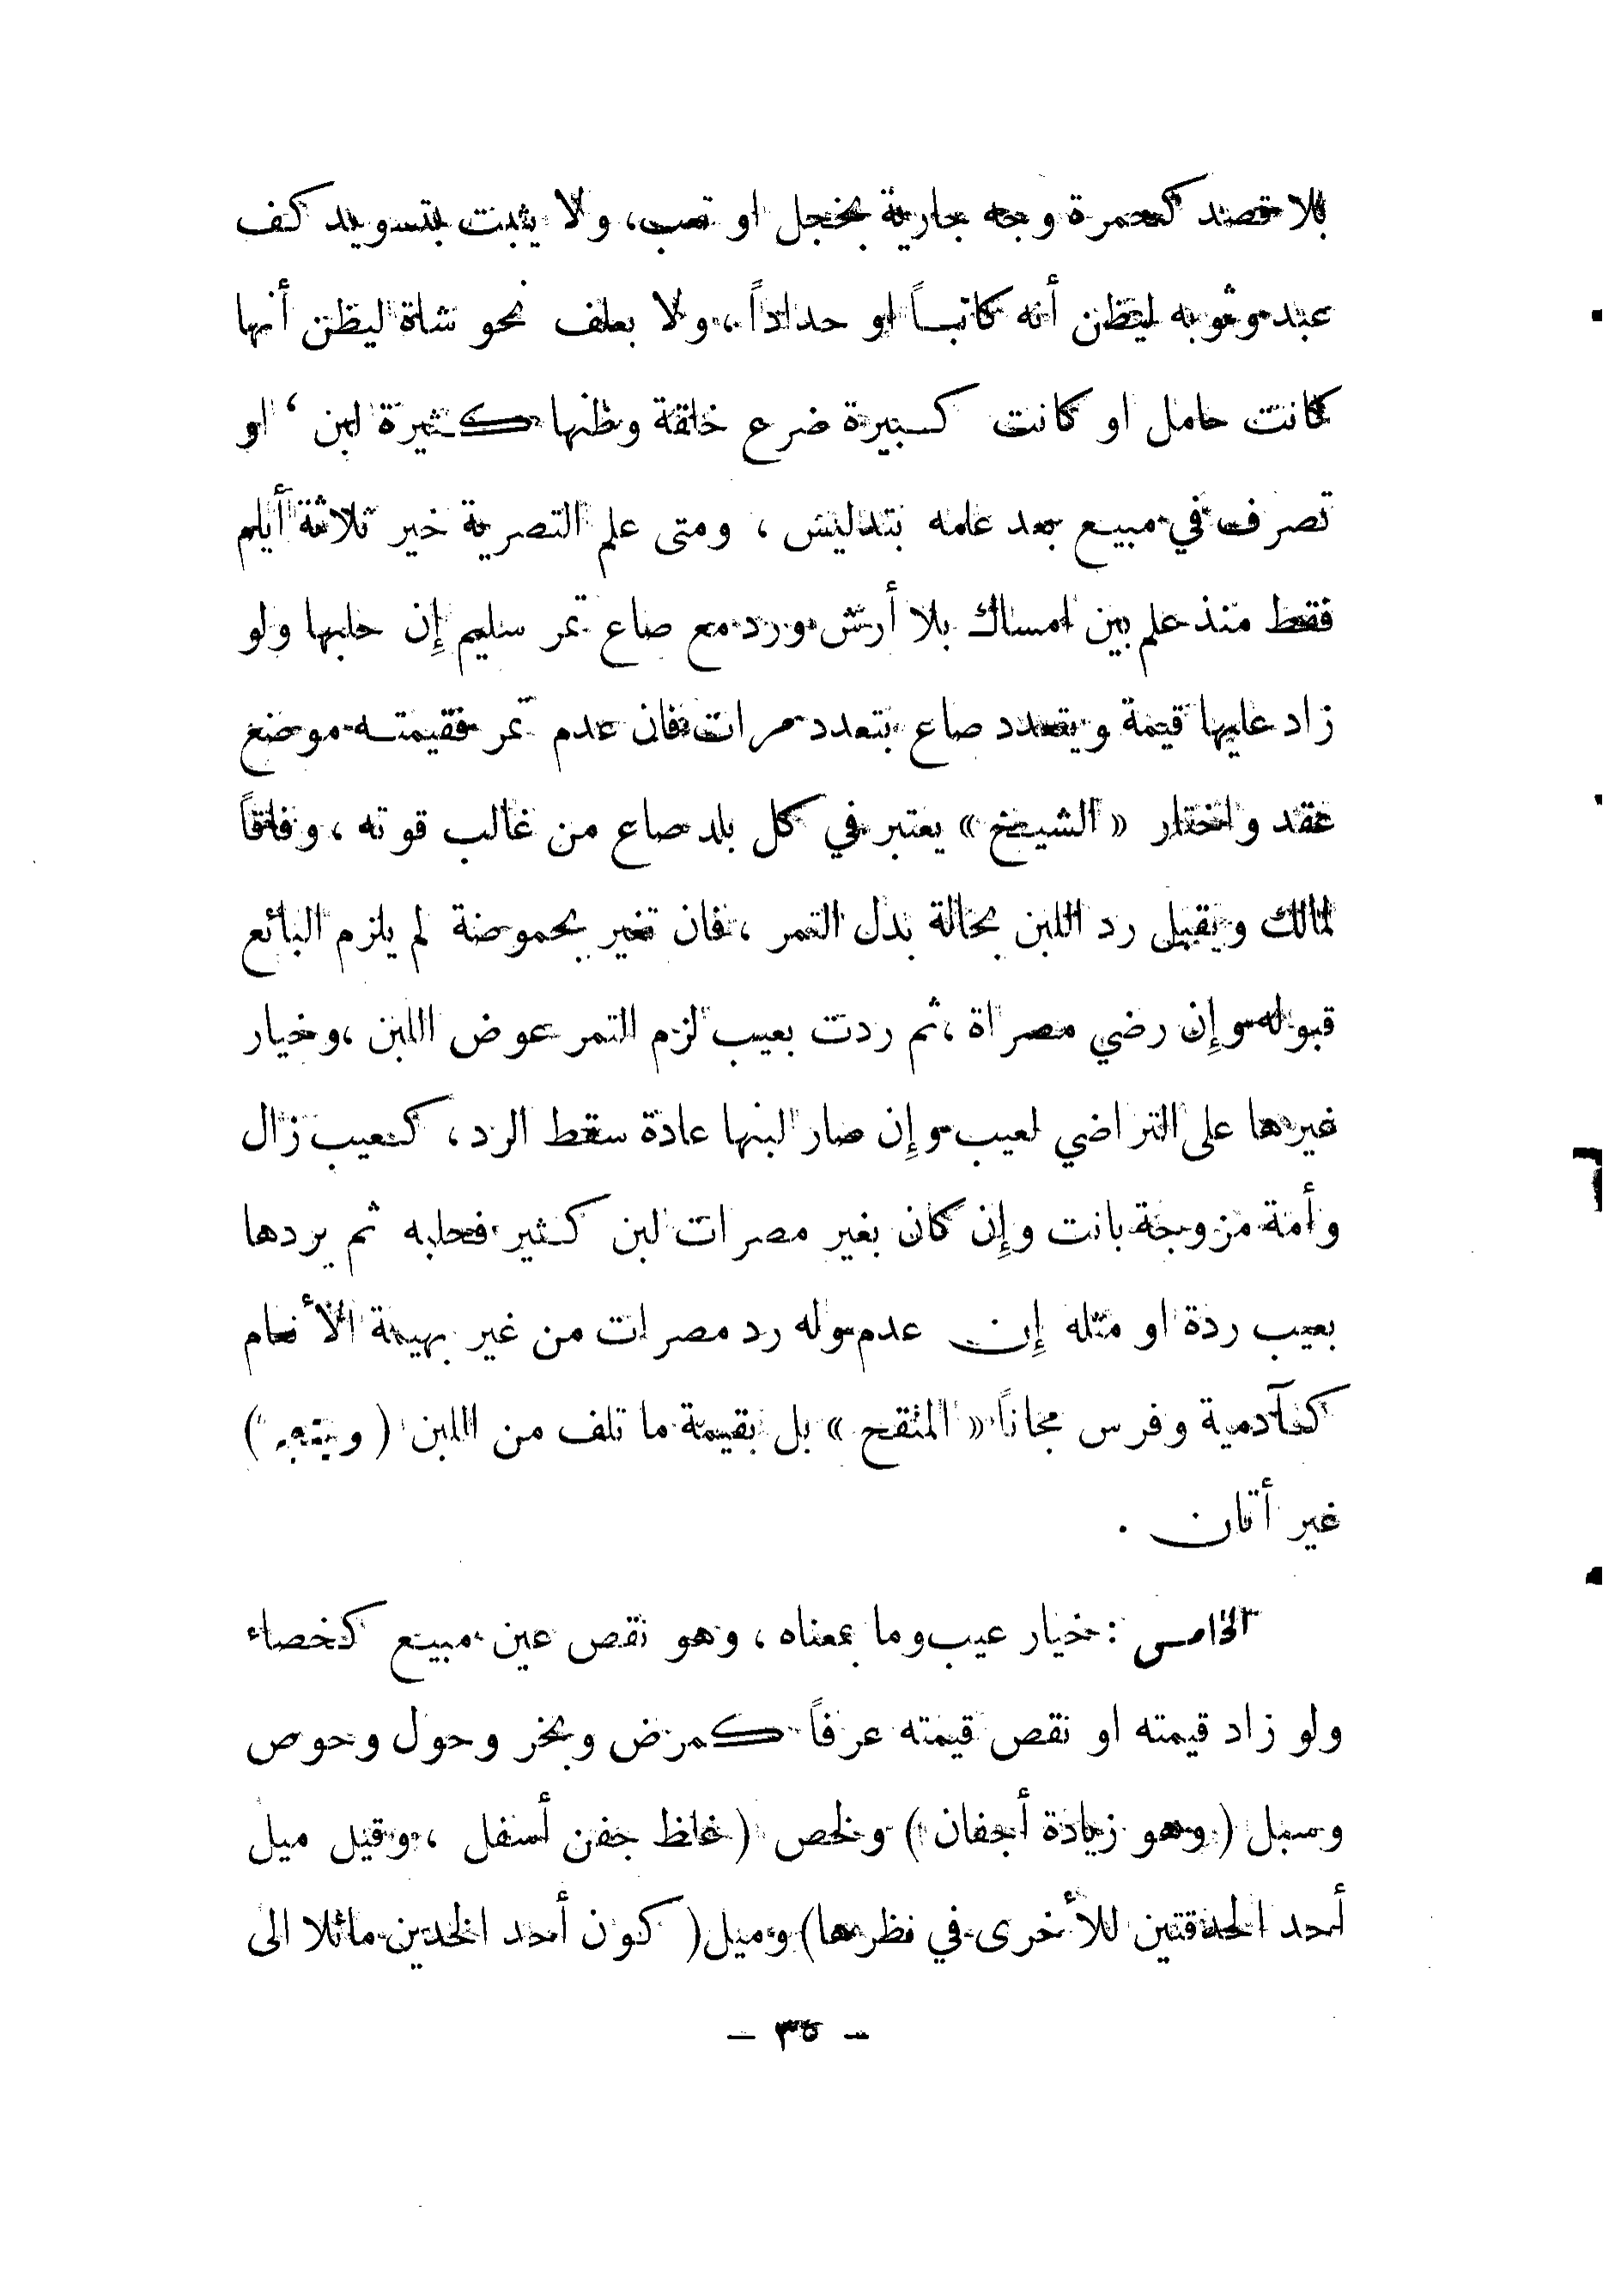 بلا قصد كحمرة وجه جارية بخجل او تعب، ولا يثبت بتسويد كف
عبد وثوبه ليظن أنه كاتباً او حداداً، ولا بعلف نحو شاة ليظن أنها
كانت حامل او كانت كبيرة ضرع خلقة وظنها كثيرة لبن ، او
تصرف في مبيع بعد علمه بتدليس ، ومتى علم التصرية خير ثلاثة أيام
فقط منذ علم بين امساك بلا أرش ورد مع صاع تمر سليم إن حلبها ولو
زاد عليها قيمة ويتعدد صاع بتعدد مرات فان عدم تمر فقيمته موضع
عقد واختار « الشيخ » يعتبر في كل بلد صاع من غالب قوته ، وفاقاً
لمالك ويقبل رد اللبن بحالة بدل التمر ، فان تغير بحموضة لم يلزم البائع
قبوله وإن رضي مصراة ، ثم ردت بعيب لزم التمر عوض اللبن ، وخيار
غيرها على التراضي لعيب وإن صار لبنها عادة سقط الرد ، كعيب زال
وأمة مزوجة بانت وإن كان بغير مصرات لبن كثير فحلبه ثم يردها
بعيب رده او مثله إن عدم وله رد مصرات من غير بهيمة الأنعام
كآدمية وفرس مجاناً « المنقح » بل بقيمة ما تلف من اللبن ( ويتجه )
غير أتان .
الخامس : خيار عيب وما بمعناه ، وهو نقص عين مبيع كخصاء
ولو زاد قيمته او نقص قيمته عرفاً كمرض وبخر وحول وحوص
وسبل ( وهو زيادة أجفان ) ولخص ( غلظ جفن أسفل ، وقيل ميل
أحد الحدقتين للأخرى في نظرها ) وميل ( كون أحد الخدين مائلا الى
— ٣٥ —